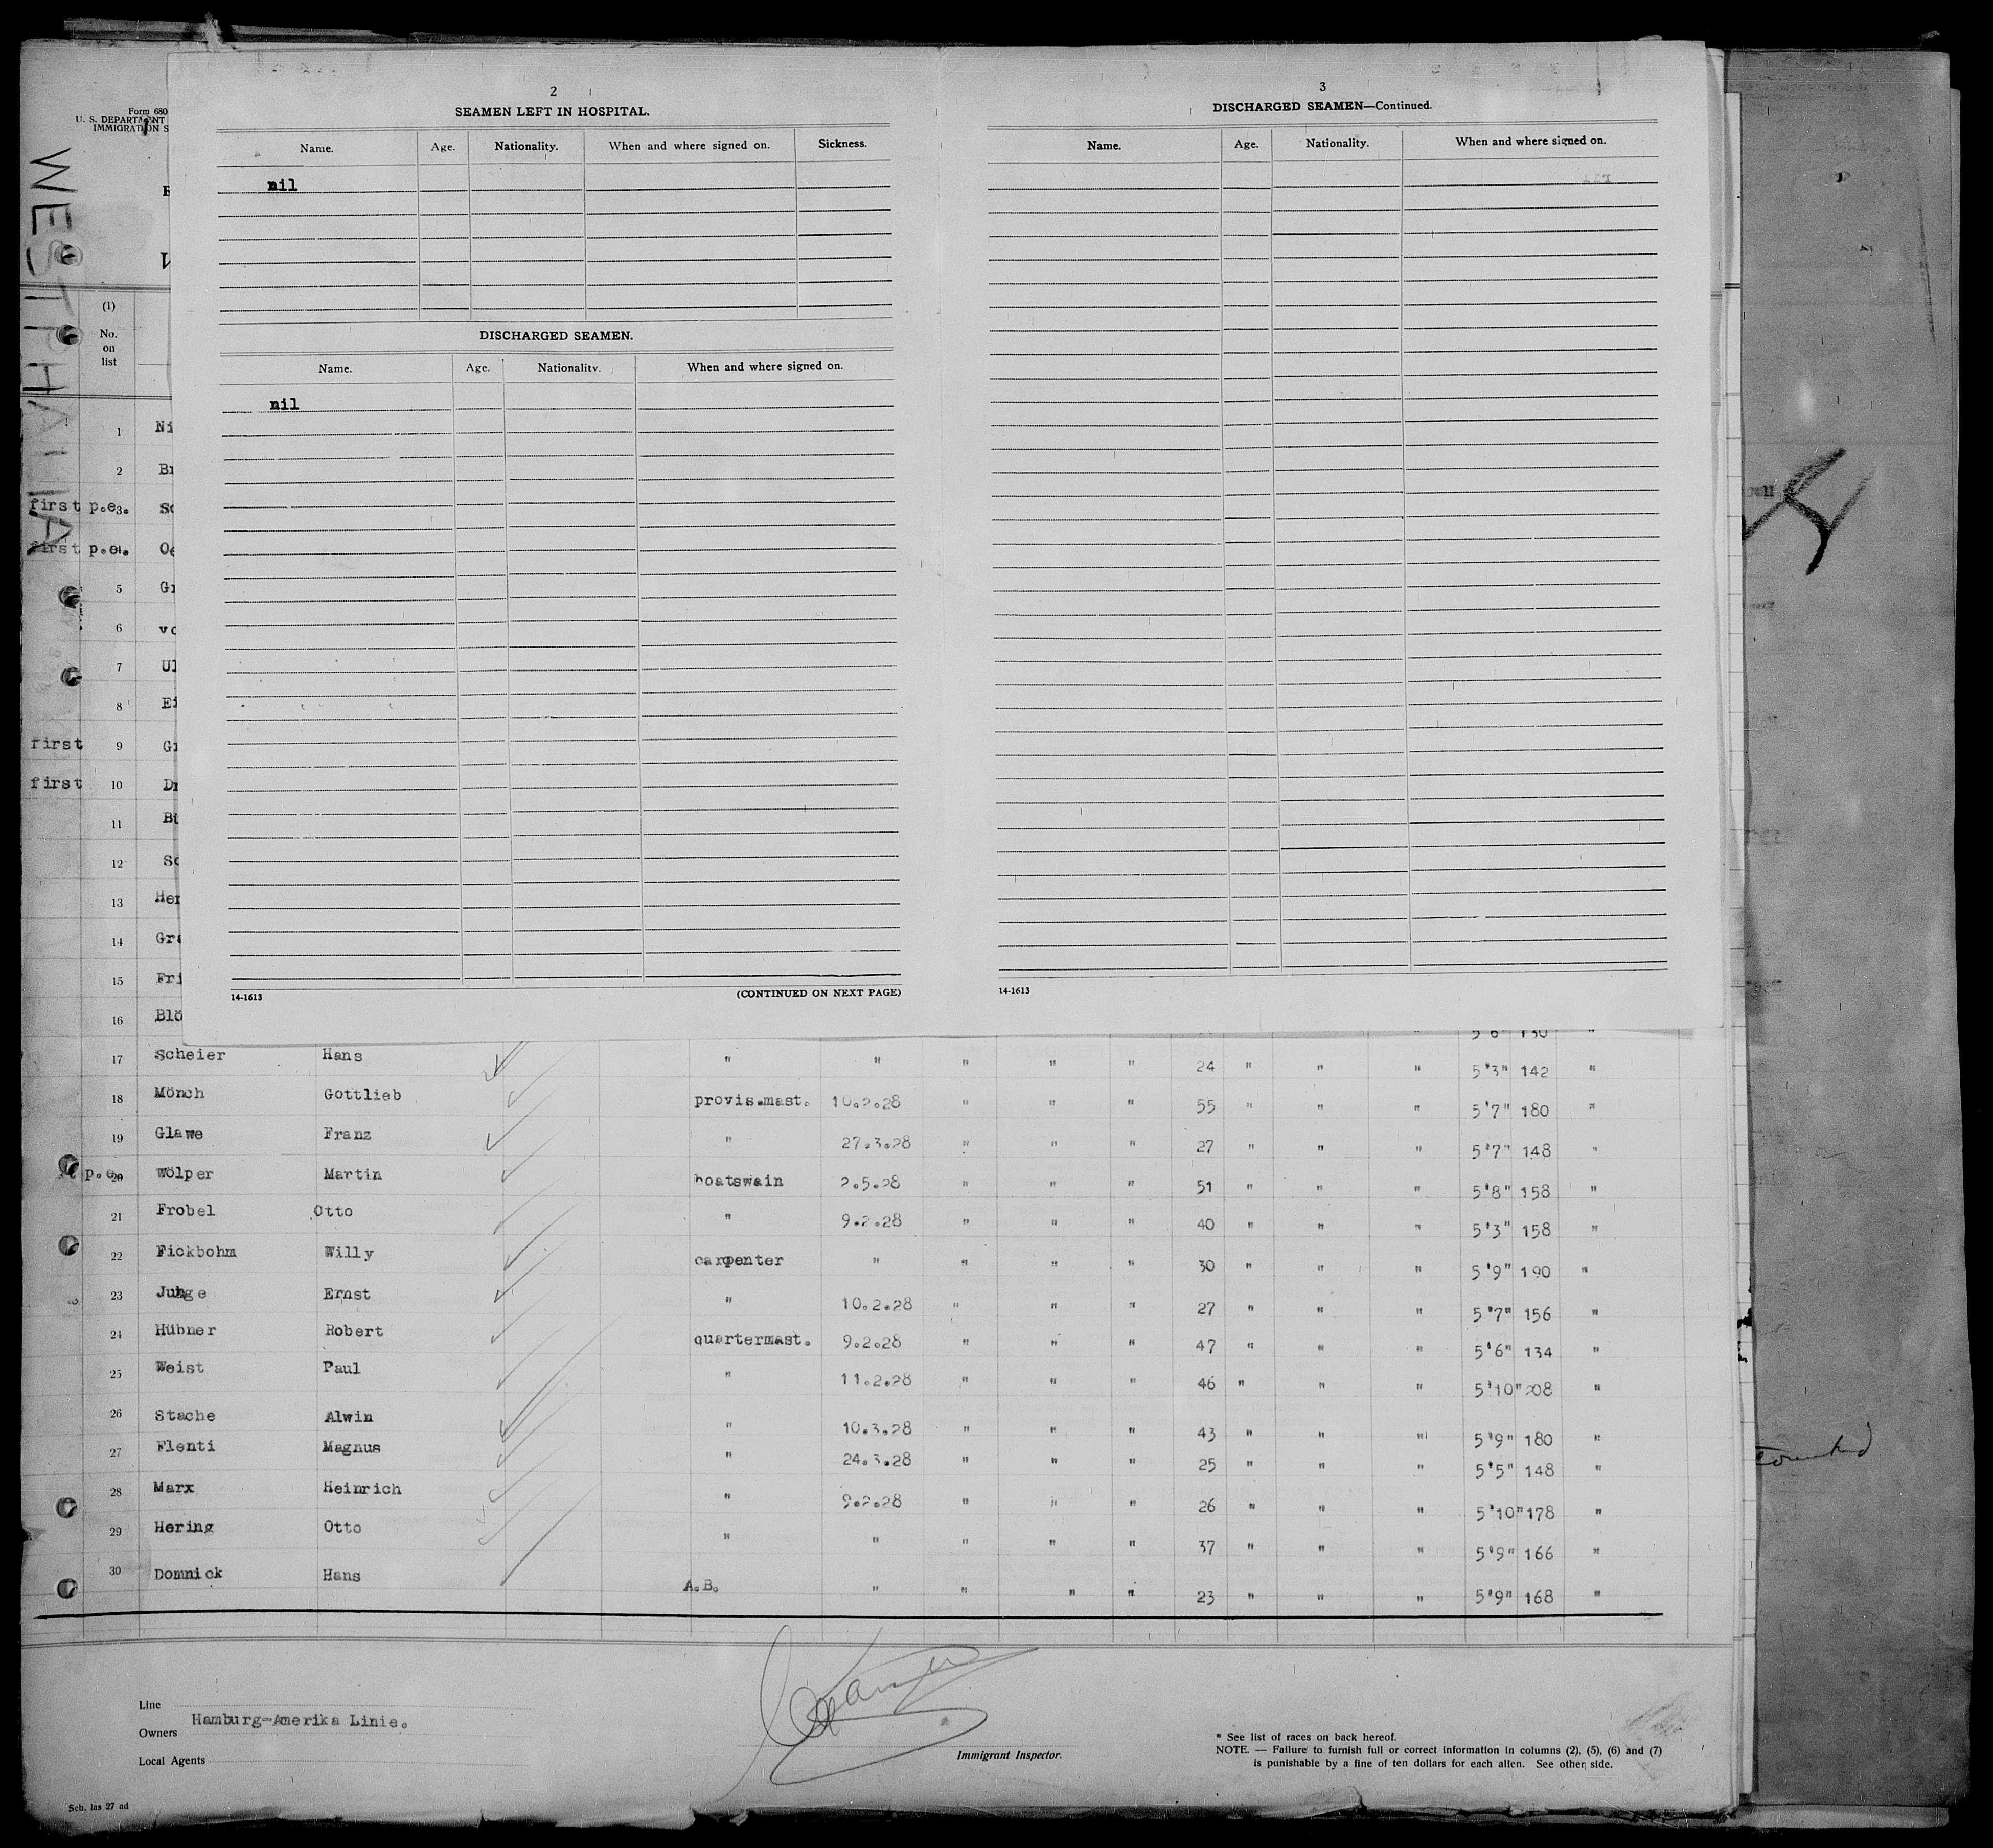 2
SEAMEN LEFT IN HOSPITAL.
Name. Age. Nationality. When and where signed on. Sickness.
nil
DISCHARGED SEAMEN.
Name. Age. Nationality. When and where signed on.
nil
14-1613 (CONTINUED ON NEXT PAGE)
3
DISCHARGED SEAMEN—Continued.
Name. Age. Nationality. When and where signed on.
14-1613
Form 680
U. S. DEPARTMENT
IMMIGRATION S
WESTPHALIA
(1)
No.
on
list
1 Ni
2 Br
first p.e. 3 Sc
first p.e. 4 Oe
5 Gr
6 vo
7 Ul
8 Ei
first 9 Gr
first 10 Dr
11 Bü
12 Sc
13 Her
14 Gra
15 Fri
16 Blö 5'6" 130 "
17 Scheier Hans " " " " " 24 " " " 5'3" 142 "
18 Mönch Gottlieb provis.mast. 10.2.28 " " " 55 " " " 5'7" 180 "
19 Glawe Franz " 27.3.28 " " " 27 " " " 5'7" 148 "
p.e. 20 Wölper Martin boatswain 2.5.28 " " " 51 " " " 5'8" 158 "
21 Frobel Otto " 9.2.28 " " " 40 " " " 5'3" 158 "
22 Fickbohm Willy carpenter " " " " 30 " " " 5'9" 190 "
23 Junge Ernst " 10.2.28 " " " 27 " " " 5'7" 156 "
24 Hübner Robert quartermast. 9.2.28 " " " 47 " " " 5'6" 134 "
25 Weist Paul " 11.2.28 " " " 46 " " " 5'10" 208 "
26 Stache Alwin " 10.3.28 " " " 43 " " " 5'9" 180 "
27 Flenti Magnus " 24.3.28 " " " 25 " " " 5'5" 148 "
28 Marx Heinrich " 9.2.28 " " " 26 " " " 5'10" 178 "
29 Hering Otto " " " " " 37 " " " 5'9" 166 "
30 Domnick Hans A.B. " " " " 23 " " " 5'9" 168 "
Line
Owners Hamburg-Amerika Linie.
Local Agents
Immigrant Inspector.
* See list of races on back hereof.
NOTE. — Failure to furnish full or correct information in columns (2), (5), (6) and (7)
is punishable by a fine of ten dollars for each alien. See other side.
Sch. las 27 ad